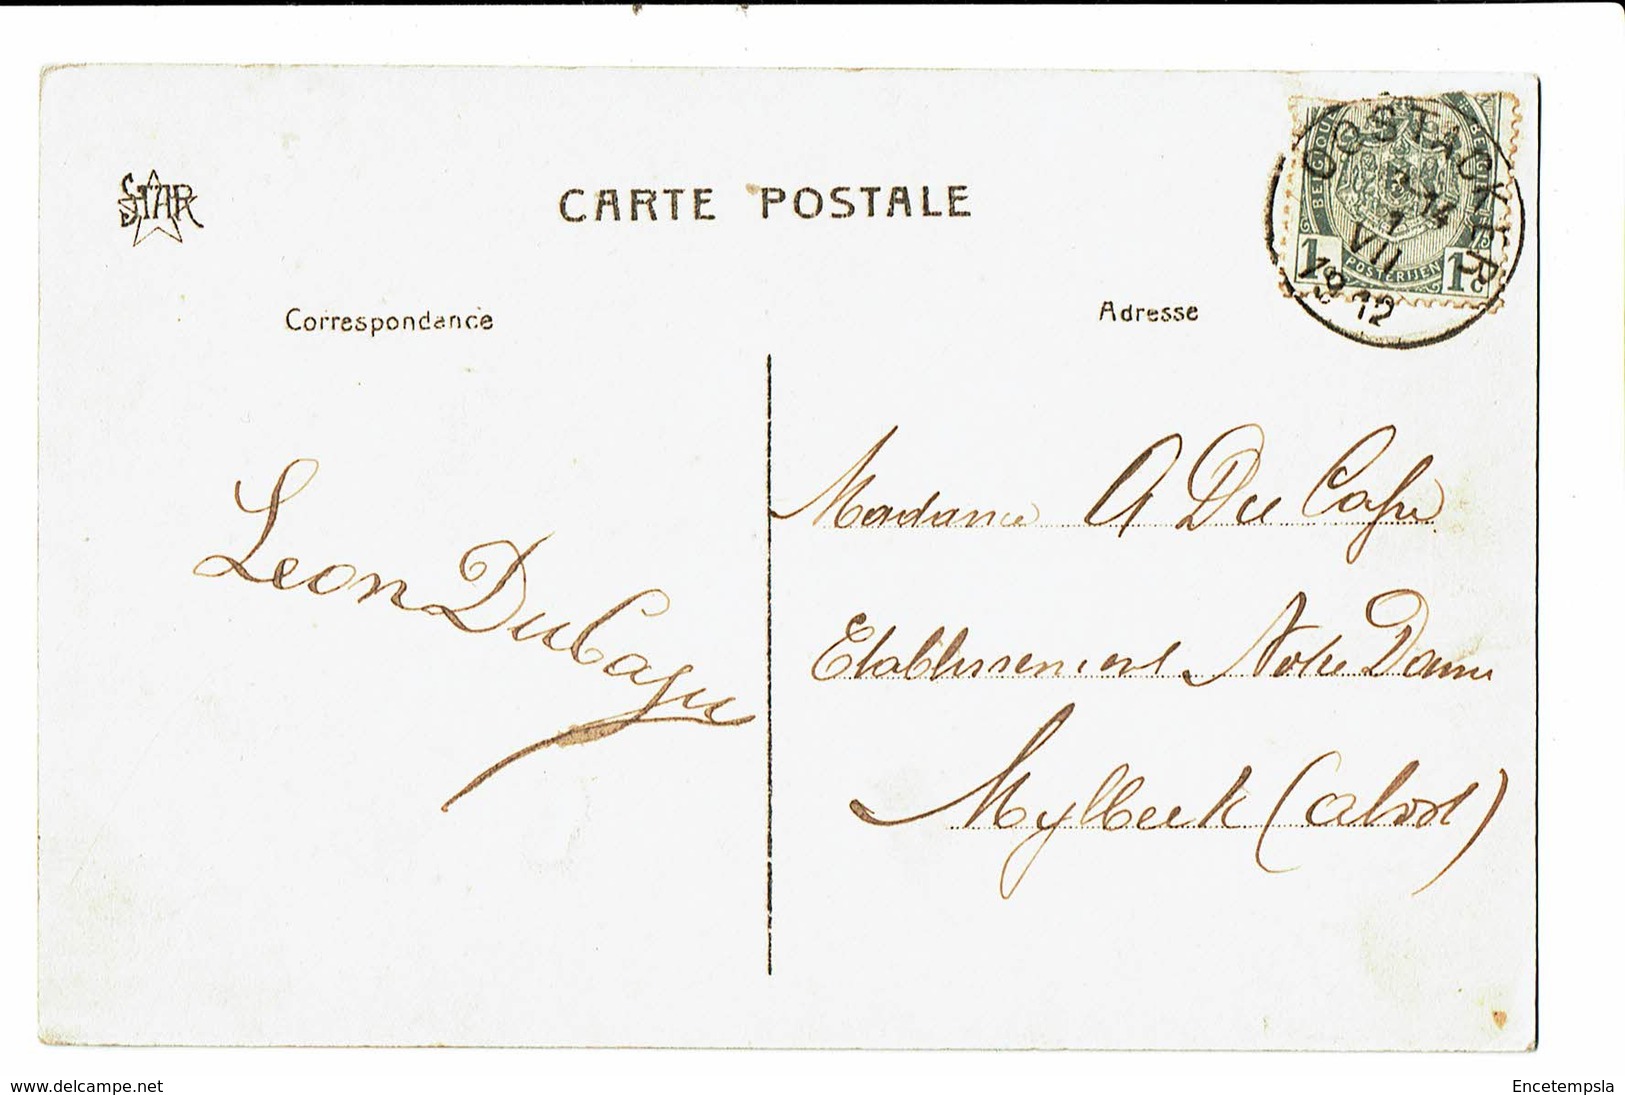 STAR
CARTE POSTALE
Correspondance
Adresse
OOSTACKER
14
1
VII
1912
BELGIQUE
BELGIË
POSTERIJEN
1c
1c
Leon Du Caju
Madame A Du Caju
Etablissement Notre Dame
Mylbeek (alost)
www.delcampe.net
Encetempsla